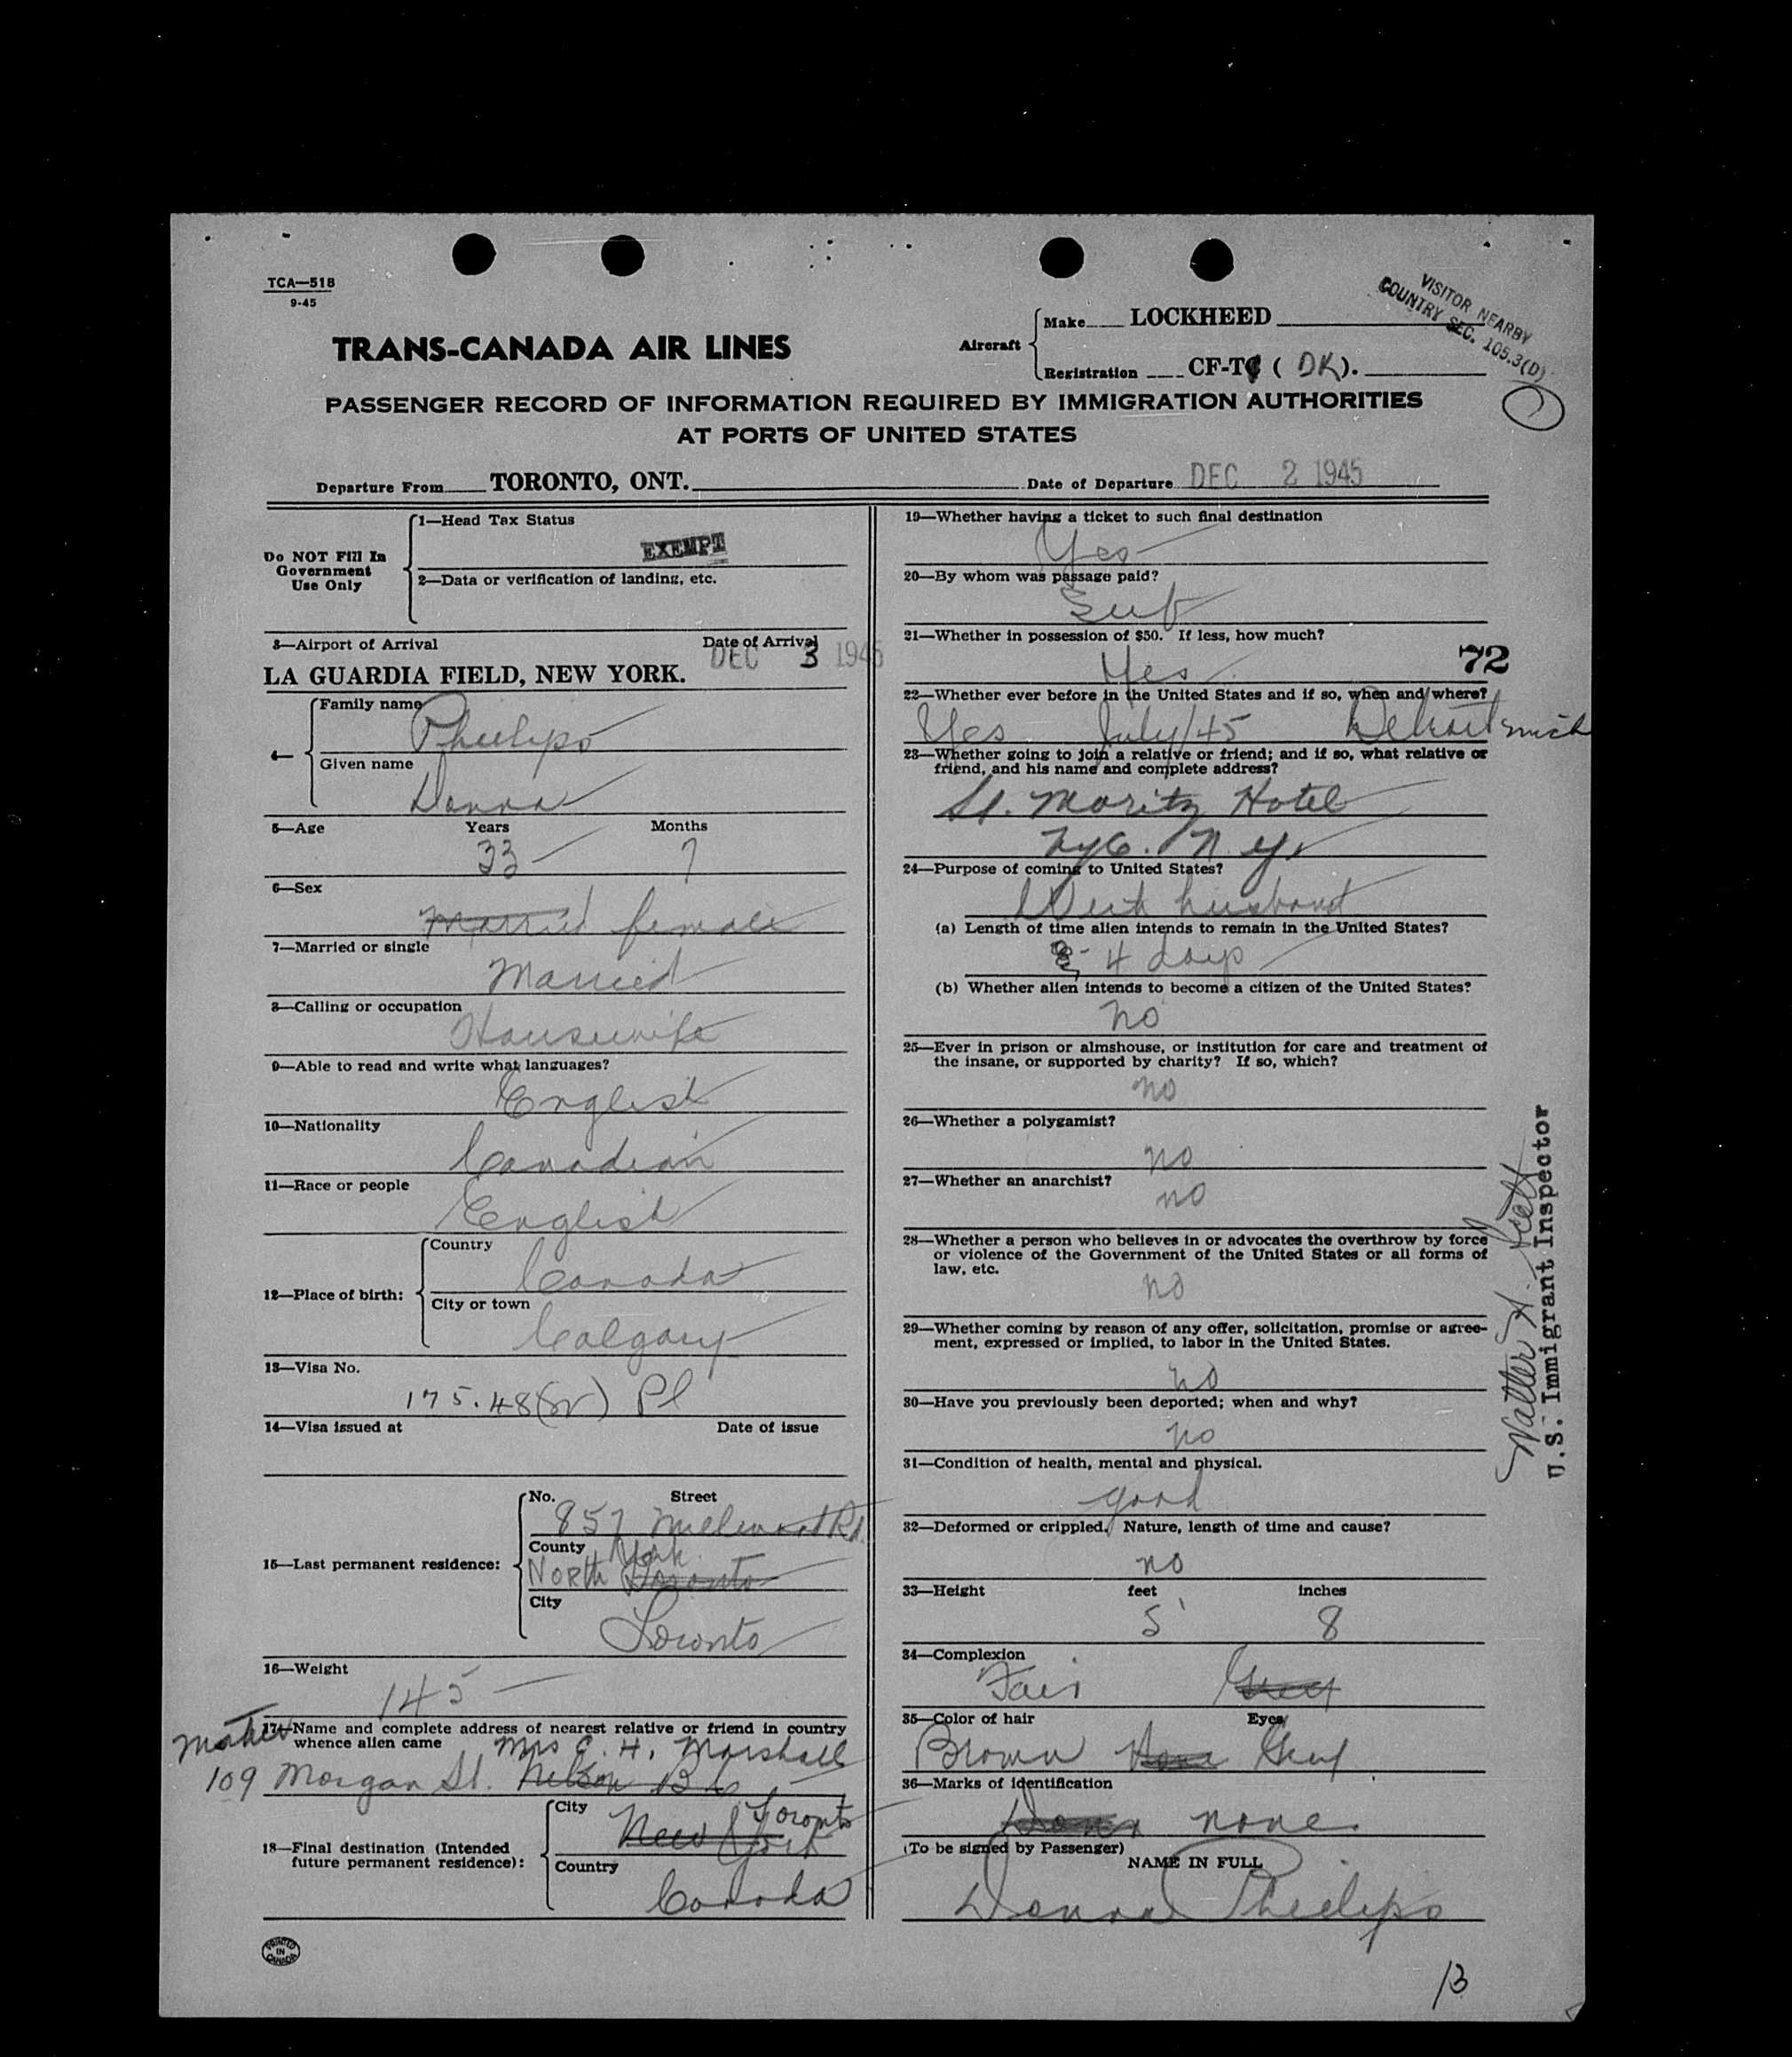 TCA—518
9-45
VISITOR NEARBY
COUNTRY SEC. 105.3(D)
TRANS-CANADA AIR LINES
Aircraft
Make LOCKHEED
Registration CF-T ( DK).
PASSENGER RECORD OF INFORMATION REQUIRED BY IMMIGRATION AUTHORITIES
AT PORTS OF UNITED STATES
Departure From TORONTO, ONT. Date of Departure DEC 2 1945
Do NOT Fill In
Government
Use Only
1—Head Tax Status
EXEMPT
2—Data or verification of landing, etc.
3—Airport of Arrival Date of Arrival
DEC 3 1945
LA GUARDIA FIELD, NEW YORK.
4—
Family name
Phillips
Given name
Donna
5—Age Years Months
33 7
6—Sex
Married female
7—Married or single
Married
8—Calling or occupation
Housewife
9—Able to read and write what languages?
English
10—Nationality
Canadian
11—Race or people
English
12—Place of birth:
Country
Canada
City or town
Calgary
13—Visa No.
175.48 Pl
14—Visa issued at Date of issue
15—Last permanent residence:
No. Street
857 Millwood Rd.
County York
NORTH Toronto
City
Toronto
16—Weight
145
Mother
17—Name and complete address of nearest relative or friend in country
whence alien came Mrs C. H. Marshall
109 Morgan St. Nelson B C
18—Final destination (Intended
future permanent residence):
City Toronto
New York
Country
Canada
19—Whether having a ticket to such final destination
Yes
20—By whom was passage paid?
Self
21—Whether in possession of $50. If less, how much?
Yes
72
22—Whether ever before in the United States and if so, when and where?
Yes July/45 Detroit Mich
23—Whether going to join a relative or friend; and if so, what relative or
friend, and his name and complete address?
St. Moritz Hotel
NYC. N.Y.
24—Purpose of coming to United States?
With husband
(a) Length of time alien intends to remain in the United States?
4 days
(b) Whether alien intends to become a citizen of the United States?
no
25—Ever in prison or almshouse, or institution for care and treatment of
the insane, or supported by charity? If so, which?
no
26—Whether a polygamist?
no
27—Whether an anarchist?
no
28—Whether a person who believes in or advocates the overthrow by force
or violence of the Government of the United States or all forms of
law, etc.
no
29—Whether coming by reason of any offer, solicitation, promise or agree-
ment, expressed or implied, to labor in the United States.
no
30—Have you previously been deported; when and why?
no
31—Condition of health, mental and physical.
good
32—Deformed or crippled. Nature, length of time and cause?
no
33—Height feet inches
5' 8
34—Complexion
Fair Grey
35—Color of hair Eyes
Brown Grey
36—Marks of identification
none.
(To be signed by Passenger)
NAME IN FULL
Donna Phillips
Walter A.
U.S. Immigrant Inspector
PRINTED
IN
CANADA
13